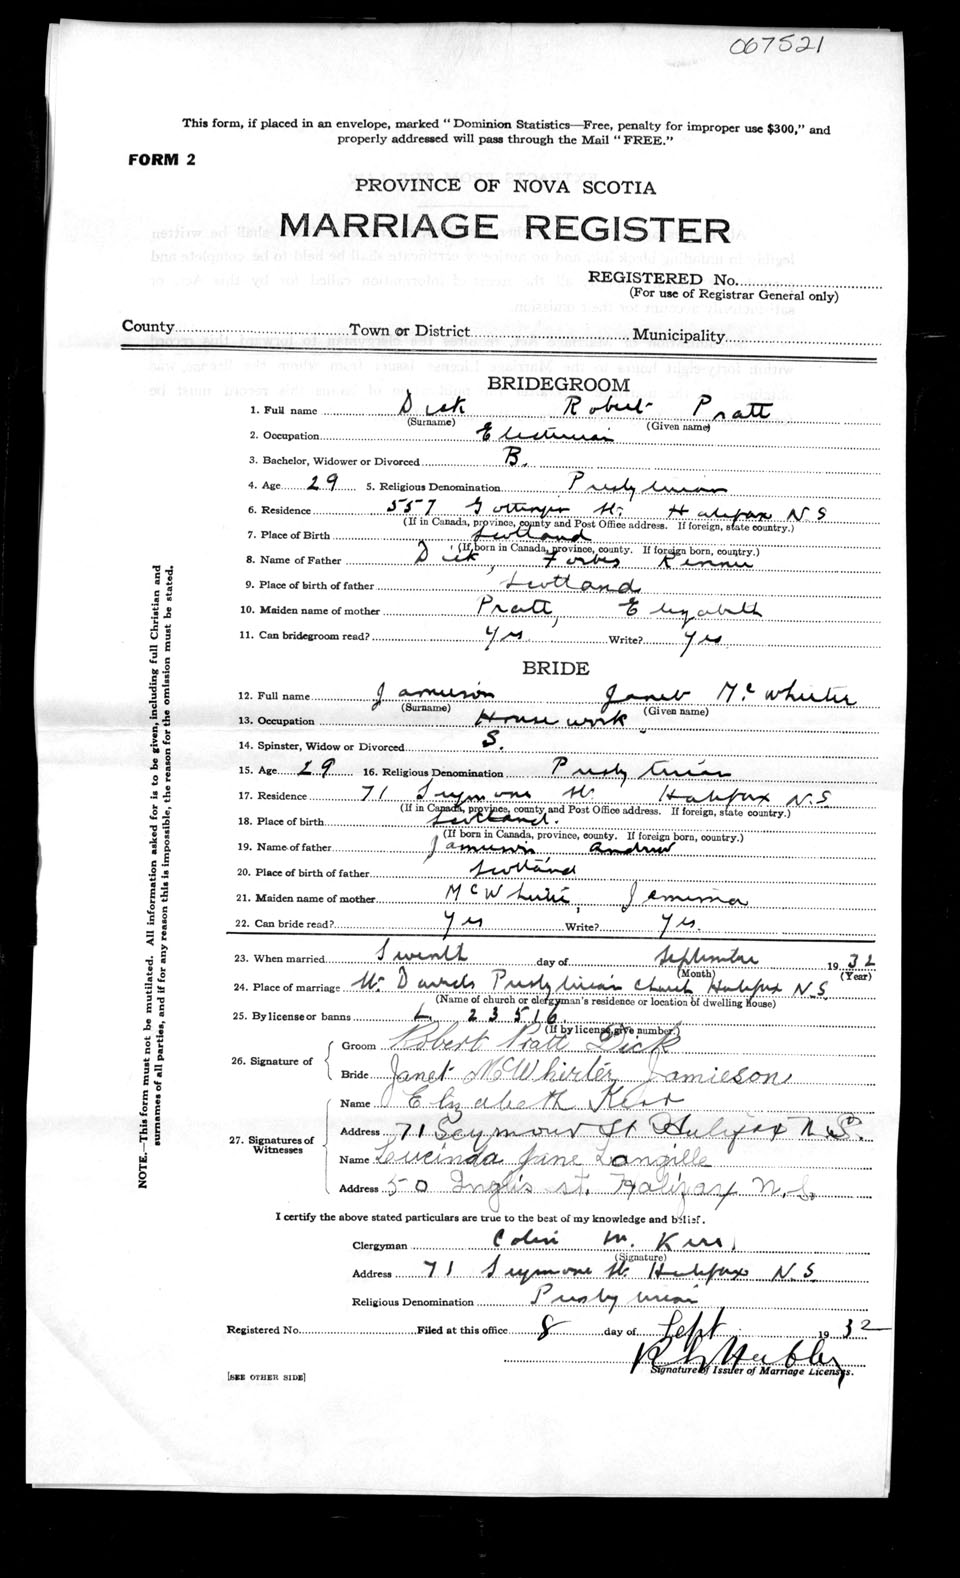 067521
This form, if placed in an envelope, marked "Dominion Statistics—Free, penalty for improper use $300," and
properly addressed will pass through the Mail "FREE."
FORM 2
PROVINCE OF NOVA SCOTIA
MARRIAGE REGISTER
REGISTERED No.
(For use of Registrar General only)
County Town or District Municipality
BRIDEGROOM
1. Full name Dick Robert Pratt
(Surname) (Given name)
2. Occupation Electrician
3. Bachelor, Widower or Divorced B.
4. Age 29 5. Religious Denomination Presbyterian
6. Residence 557 Gottingen St. Halifax N S
(If in Canada, province, county and Post Office address. If foreign, state country.)
7. Place of Birth Scotland
(If born in Canada, province, county. If foreign born, country.)
8. Name of Father Dick, Forbes Rennie
9. Place of birth of father Scotland
10. Maiden name of mother Pratt, Elizabeth
11. Can bridegroom read? Yes Write? Yes
BRIDE
12. Full name Jamieson Janet McWhirter
(Surname) (Given name)
13. Occupation Housework
14. Spinster, Widow or Divorced S.
15. Age 29 16. Religious Denomination Presbyterian
17. Residence 71 Seymour St. Halifax N.S.
(If in Canada, province, county and Post Office address. If foreign, state country.)
18. Place of birth Scotland.
(If born in Canada, province, county. If foreign born, country.)
19. Name of father Jamieson Andrew
20. Place of birth of father Scotland
21. Maiden name of mother McWhirter, Jemima
22. Can bride read? Yes Write? Yes.
23. When married Seventh day of September 1932
(Month) (Year)
24. Place of marriage St. Davids Presbyterian Church Halifax N.S.
(Name of church or clergyman's residence or location of dwelling house)
25. By license or banns L 23516
(If by license, give number.)
26. Signature of Groom Robert Pratt Dick
Bride Janet McWhirter Jamieson
27. Signatures of Witnesses Name Elizabeth Kerr
Address 71 Seymour St Halifax N.S.
Name Lucinda Jane Langille
Address 50 Inglis st. Halifax N.S.
I certify the above stated particulars are true to the best of my knowledge and belief.
Clergyman Colin M. Kerr
(Signature)
Address 71 Seymour St. Halifax N.S
Religious Denomination Presbyterian
Registered No. Filed at this office 8 day of Sept 1932
Signature of Issuer of Marriage Licenses.
[SEE OTHER SIDE]
NOTE.—This form must not be mutilated. All information asked for is to be given, including full Christian and
surnames of all parties, and if for any reason this is impossible, the reason for the omission must be stated.